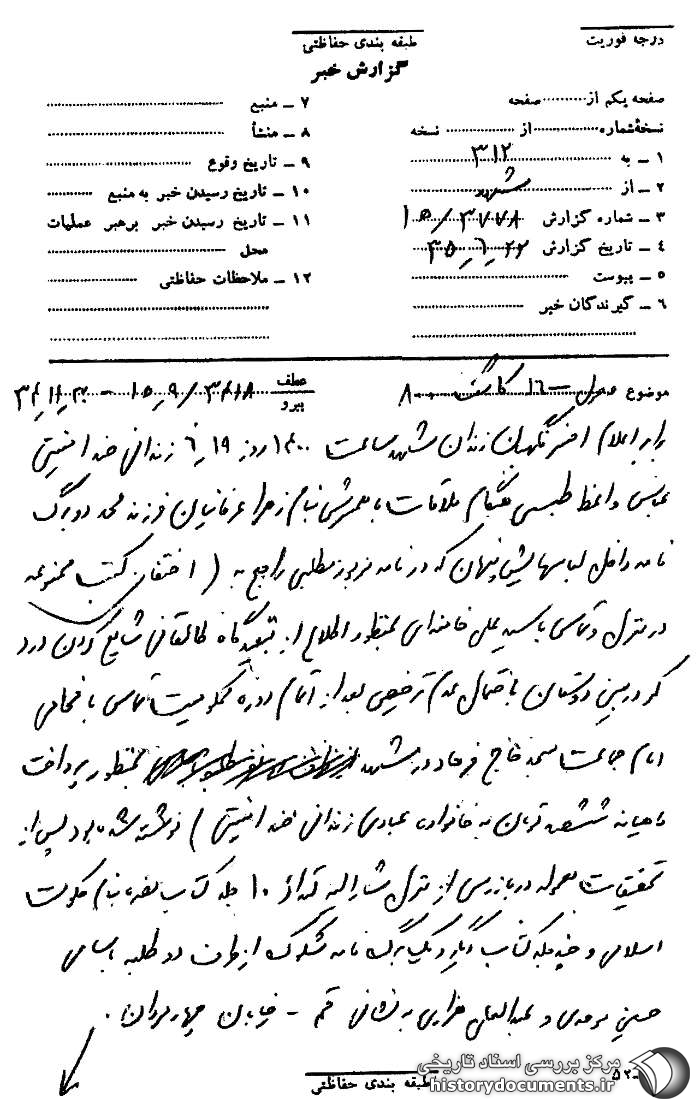 درجه فوریت
طبقه بندی حفاظتی
گزارش خبر
صفحه یکم از ............ صفحه
نسخه‌شماره ............ از ............ نسخه
۱ ــ به ۳۱۲
۲ ــ از مشهد
۳ ــ شماره گزارش ۱۵/۳۷۷۸
۴ ــ تاریخ گزارش ۳۵-۶-۲۲
۵ ــ پیوست
۶ ــ گیرندگان خبر
۷ ــ منبع
۸ ــ منشأ
۹ ــ تاریخ وقوع
۱۰ ــ تاریخ رسیدن خبر به منبع
۱۱ ــ تاریخ رسیدن خبر برهبر عملیات
محل
۱۲ ــ ملاحظات حفاظتی
موضوع
عطف
پیرو
برابر اعلام افسر نگهبان زندان مشهد ساعت ۱۳۰۰ روز ۱۹/۶ زندانی ضد امنیتی
عباس واعظ طبسی هنگام ملاقات با همسرش بنام زهرا عرفانیان فرزند محمد دو برگ
نامه داخل لباسهایش پنهان که در نامه مزبور مطلبی راجع به ( اختفای کتب ممنوعه
در منزل و تماس با سید علی خامنه‌ای بمنظور اطلاع از تبعیدگاه طالقانی شایع کردن درد
کمر در بین دوستان با احتمال عدم ترخیص بعد از اتمام دوره محکومیت تماس با
امام جماعت مسجد حاج فرهاد در مشهد بمنظور پرداخت
ماهیانه ششصد تومان به خانواده عبادی زندانی ضد امنیتی ) نوشته شده بود پس از
تحقیقات معموله در بازرسی از منزل مشارالیه تعداد ۱۰ جلد کتاب بنام حکومت
اسلامی و چند جلد کتاب دیگر و یک برگ نامه مشکوک از طرف دو طلبه باسامی
حسین و عبدالعلی به نشانی قم - خیابان چهارمردان .
طبقه بندی حفاظتی
مرکز بررسی اسناد تاریخی
historydocuments.ir